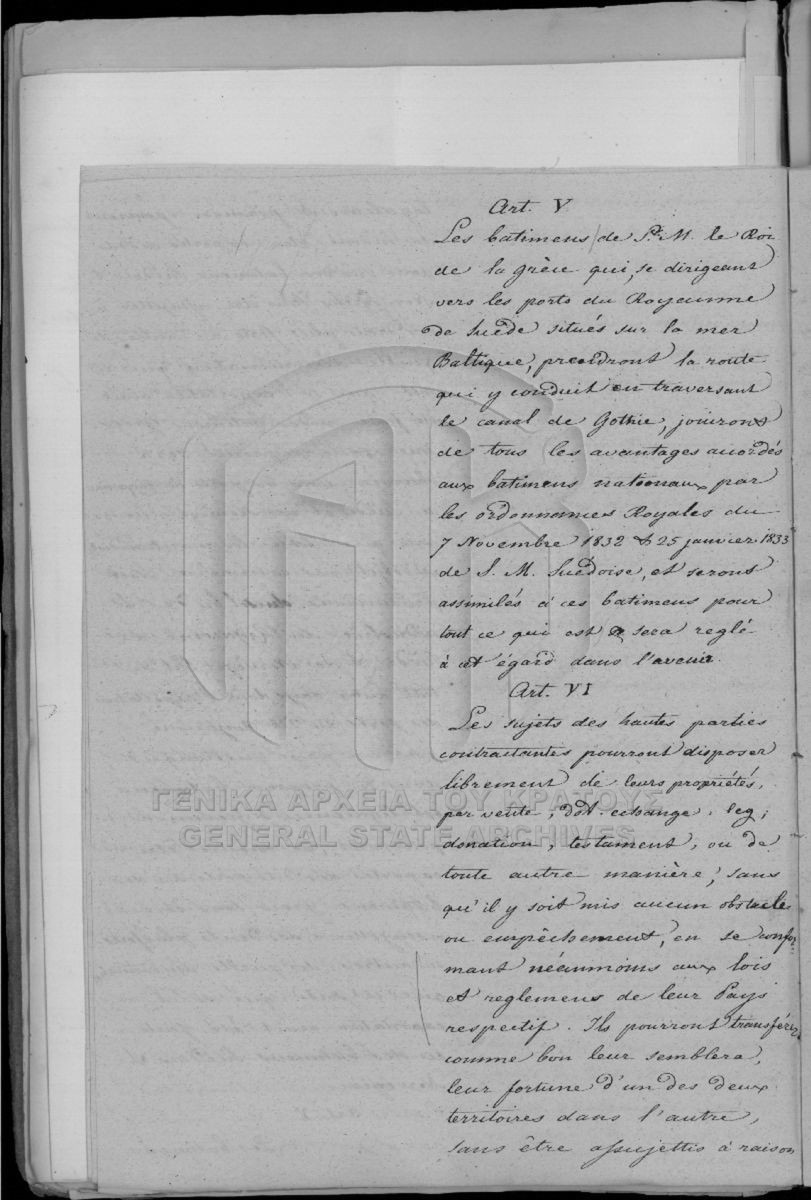 Art. V
Les batimens de S. M. le Roi
de la Grèce qui, se dirigeant
vers les ports du Royaume
de Suède situés sur la mer
Baltique, prendront la route
qui y conduit en traversant
le canal de Gothie, jouiront
de tous les avantages accordés
aux batimens nationaux par
les ordonnances Royales du
7 Novembre 1832 & 25 janvier 1833
de S. M. Suédoise, et seront
assimilés à ces batimens pour
tout ce qui est & sera reglé
à cet égard dans l'avenir.
Art. VI
Les sujets des hautes parties
contractantes pourront disposer
librement de leurs propriétés,
par vente, dot. echange, leg,
donation, testament, ou de
toute autre manière, sans
qu'il y soit mis aucun obstacle
ou empêchement, en se confor
mant néanmoins aux lois
et reglemens de leur Pays
respectif. Ils pourront transférer
comme bon leur semblera,
leur fortune d'un des deux
territoires dans l'autre,
sans être assujettis à raison
ΓΕΝΙΚΑ ΑΡΧΕΙΑ ΤΟΥ ΚΡΑΤΟΥΣ
GENERAL STATE ARCHIVES